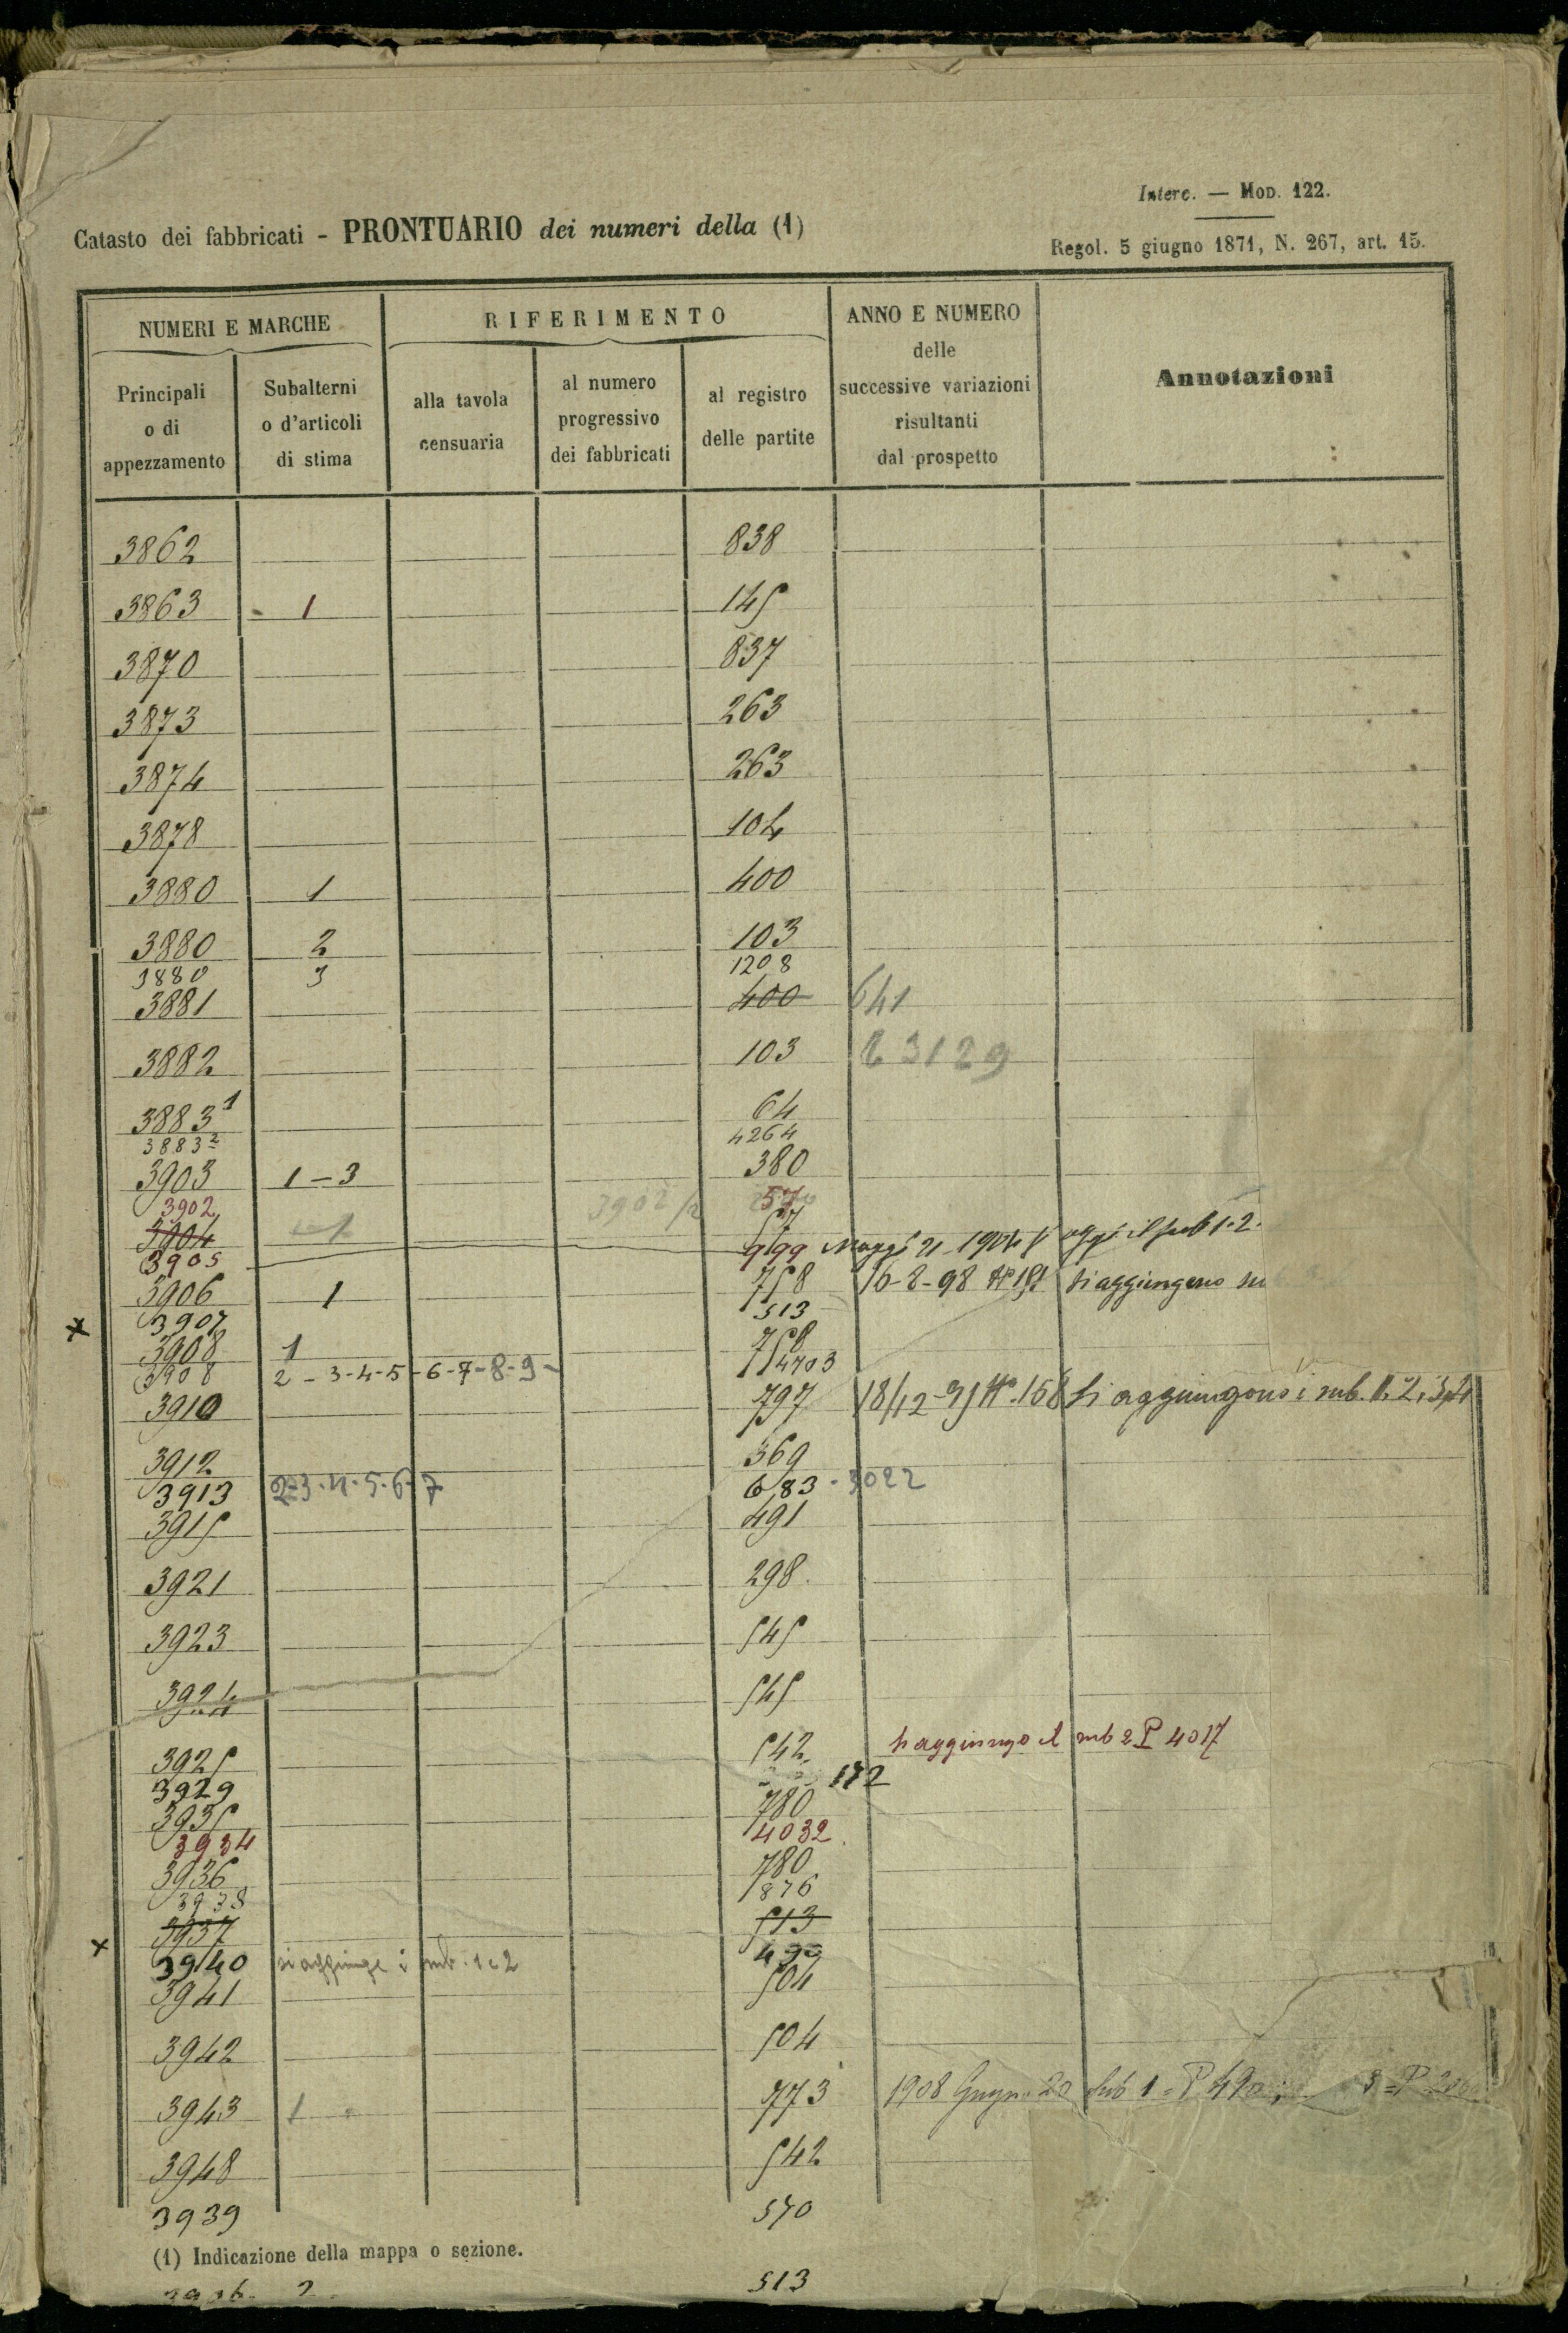 Interc. — MOD. 122.
Catasto dei fabbricati - PRONTUARIO dei numeri della (1)
Regol. 5 giugno 1871, N. 267, art. 15.
NUMERI E MARCHE
RIFERIMENTO
ANNO E NUMERO delle successive variazioni risultanti dal prospetto
Annotazioni
Principali o di appezzamento
Subalterni o d'articoli di stima
alla tavola censuaria
al numero progressivo dei fabbricati
al registro delle partite
3862 838
3863 1 145
3870 837
3873 263
3874 263
3878 104
3880 1 400
3880 2 103
3880 3 1208
3881 400 641
3882 103 3129
3883 1 64
3883 2 4264
3903 1-3 380
3902 3902/2 57
3904 57
3905 999 21-1904 il sub 1-2.
3906 1 758 16-8-98 si aggiungono
3907 513
3908 1 758
3908 2-3-4-5-6-7-8-9- 4703
3910 797 18/12-31 N.168 si aggiungono i sub. 1, 2, 3,4
3912 369
3913 2-3-4-5-6-7 683-3022
3915 491
3921 298
3923 545
3924 545
3925 542 si aggiunge il sub 2 P 4017
3929 172
3935 780
3934 4032
3936 780
3938 876
3937 513
3940 si aggiunge i sub. 1 e 2 499
3941 504
3942 504
3943 1 773 1908 20 Sub 1 = P 490
3948 542
3939 570
(1) Indicazione della mappa o sezione.
2 513